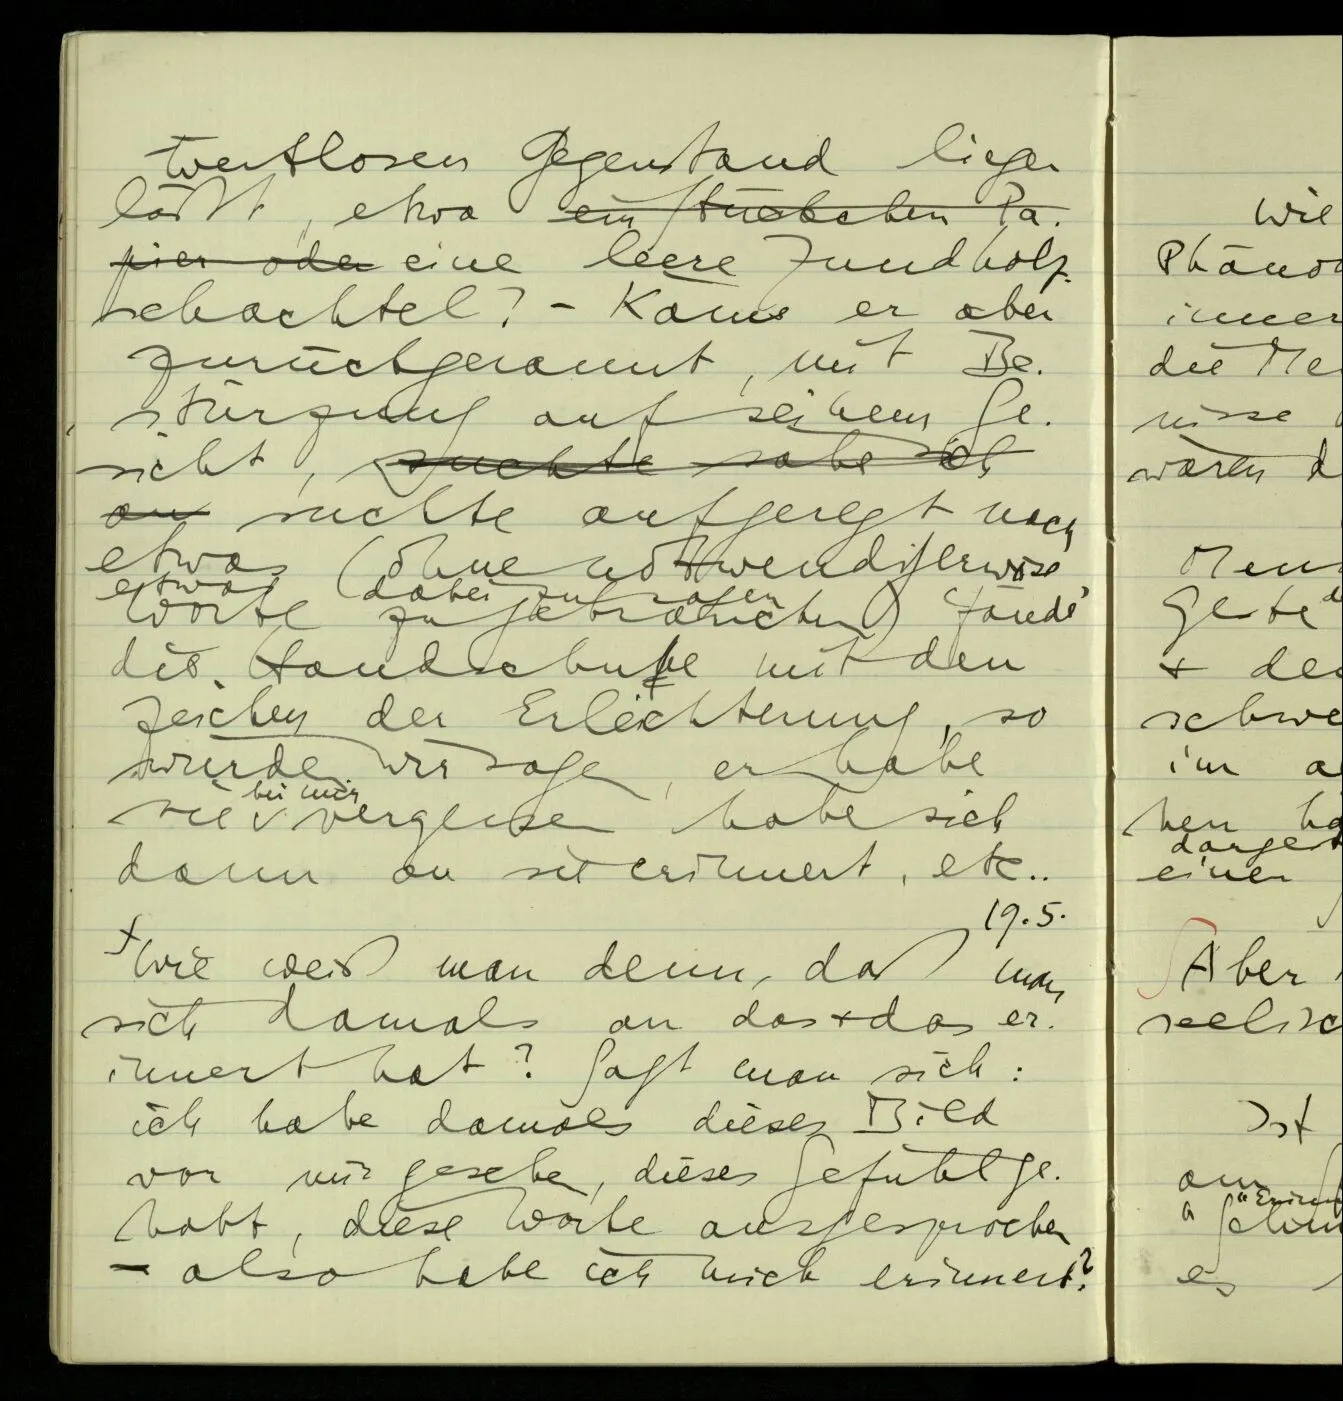 wertlosen Gegenstand liegen
läßt, etwa ein Stückchen Pa-
pier oder eine leere Zündholz-
schachtel? – Käme er aber
zurückgerannt, mit Be-
stürzung auf seinem Ge-
sicht, suchte sähe sich
an suchte aufgeregt nach
etwas (ohne notwendigerweise
etwas dabei zu sagen
Worte zu gebrauchen) fände
die Handschuhe mit den
Zeichen der Erleichterung, so
würden wir sagen, er habe
bei mir
sie vergessen habe sich
dann an sie erinnert, etc..
19.5.
+ Wie weiß man denn, daß man
sich damals an das + das er-
innert hat? Sagt man sich:
ich habe damals dieses Bild
vor mir gesehen, dieses Gefühl ge-
habt, diese Worte ausgesprochen
– also habe ich mich erinnert?
Wie
inner
die Me
nisse
waren d
+ de
schwe
im a
einen
Aber
seelisc
Ist
am
es